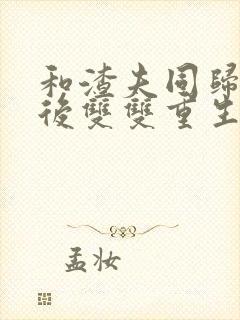 和渣夫同歸
後雙雙重生
孟妆